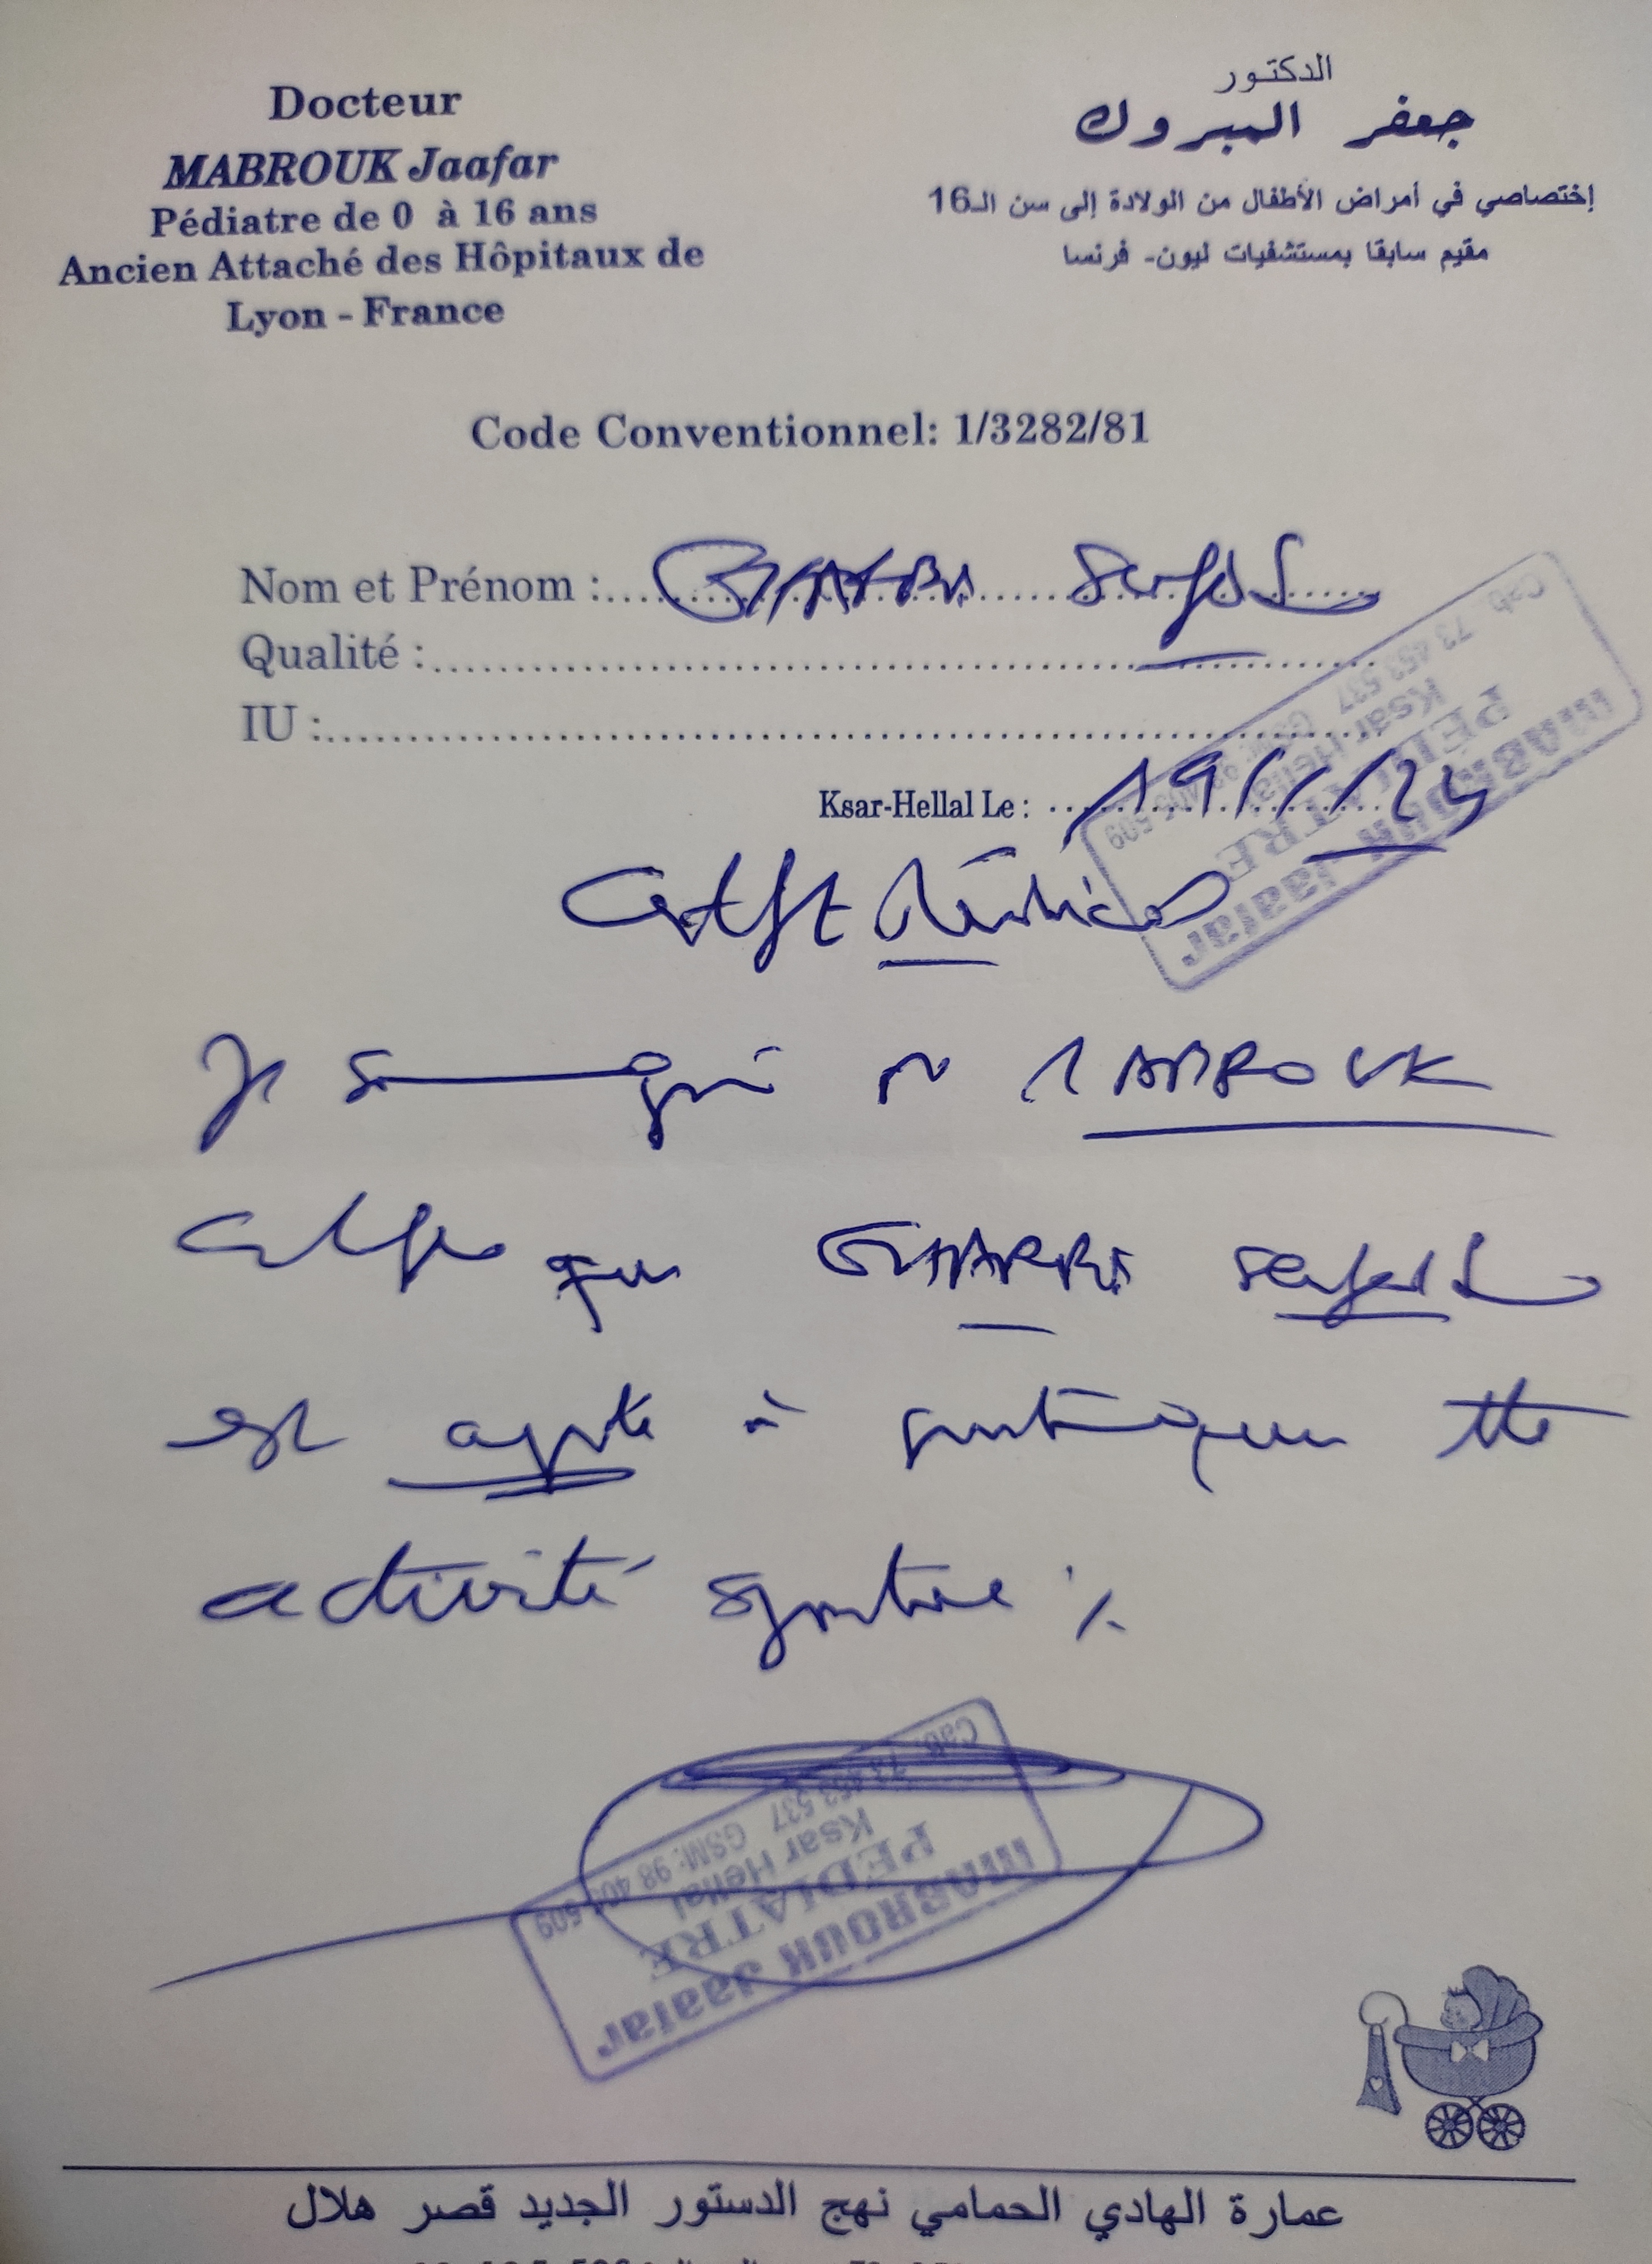 Docteur
MABROUK Jaafar
Pédiatre de 0 à 16 ans
Ancien Attaché des Hôpitaux de
Lyon - France
الدكتور
جعفر المبروك
إختصاصي في أمراض الأطفال من الولادة إلى سن الـ16
مقيم سابقا بمستشفيات ليون- فرنسا
Code Conventionnel: 1/3282/81
Nom et Prénom :
Qualité :
IU :
Ksar-Hellal Le : 19/1/24
Certificat Médical
Je soussigné Dr MABROUK
certifie que GHARBI
est apte à pratiquer tte
activité sportive ./.
MABROUK Jaafar
PEDIATRE
Ksar Hellal
Cab. 73 453 537 GSM: 98 405 509
MABROUK Jaafar
PEDIATRE
Ksar Hellal
Cab. 73 453 537 GSM: 98 405 509
عمارة الهادي الحمامي نهج الدستور الجديد قصر هلال